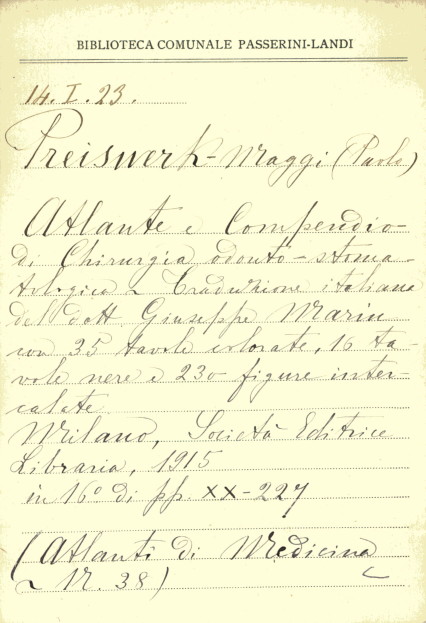 BIBLIOTECA COMUNALE PASSERINI-LANDI
14. I. 23.
Preiswerk-Maggi (Paolo)
Atlante e Compendio
di Chirurgia odonto-stoma-
tologica ~ Traduzione italiana
del dott. Giuseppe Marin
con 35 tavole colorate, 16 ta-
vole nere e 230 figure inter-
calate.
Milano, Società Editrice
Libraria, 1915
in 16º di pp. XX-227
(Atlanti di Medicina
~ N. 38)